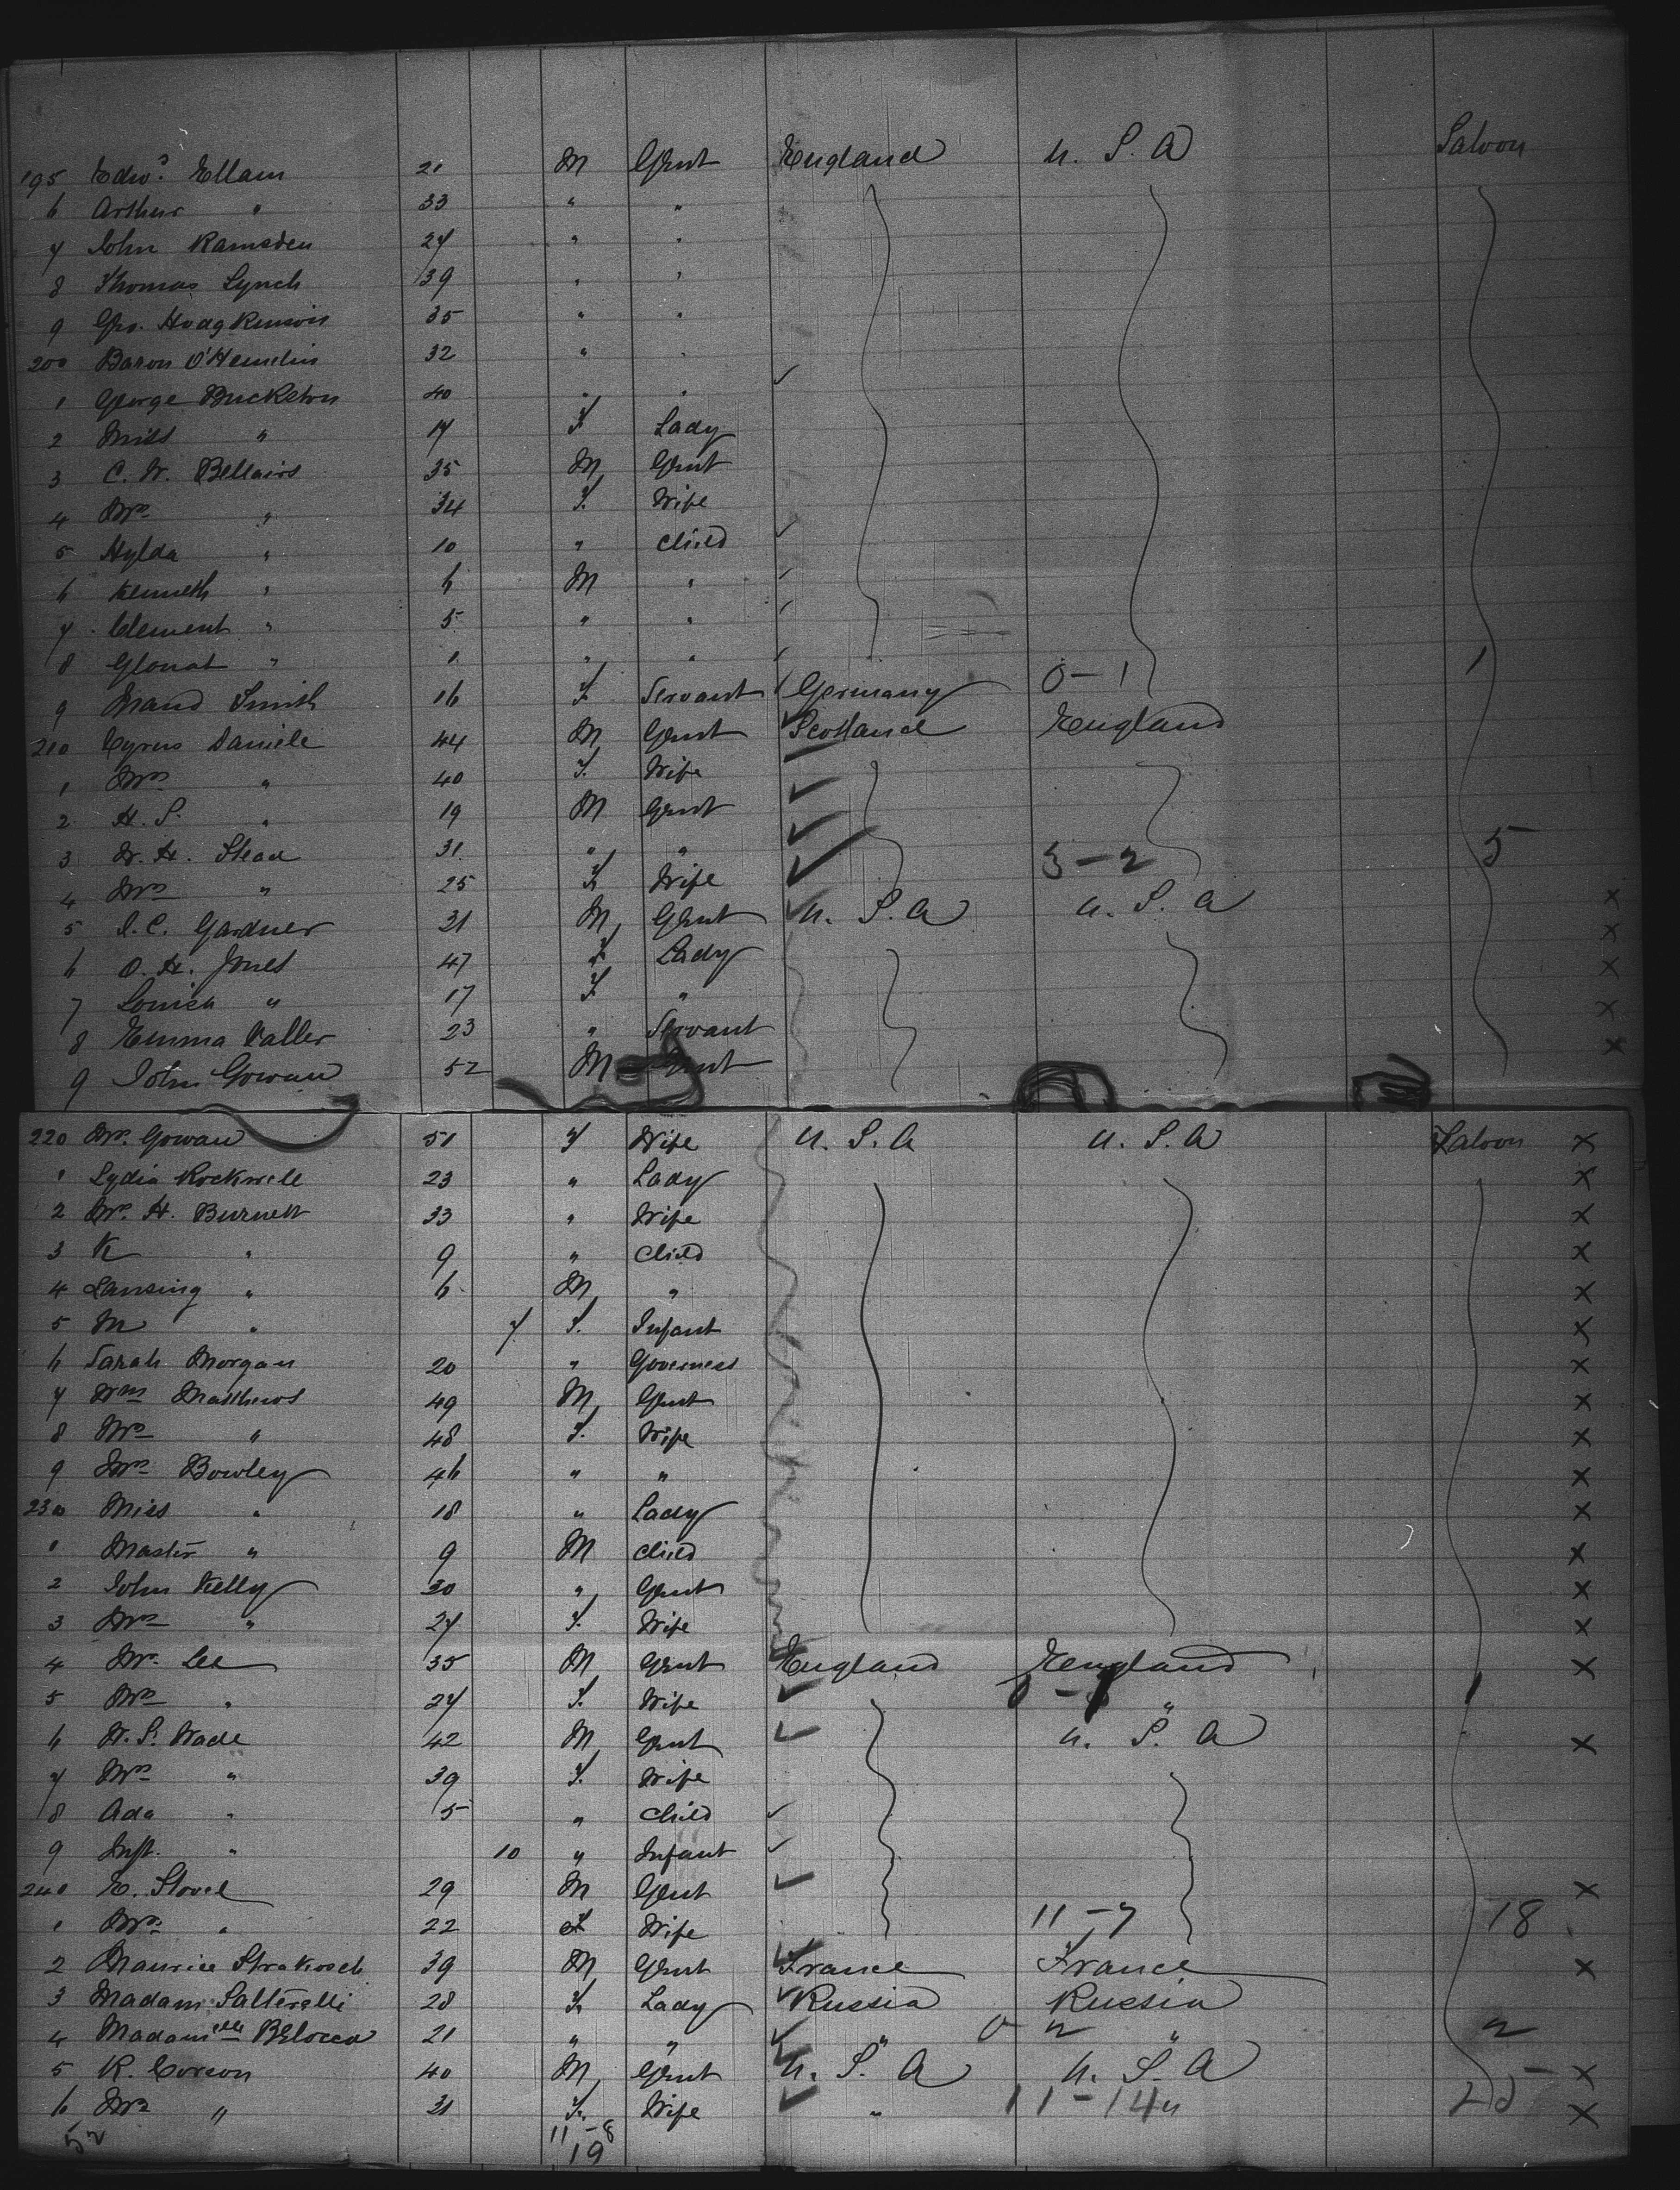 195 Edwd Ellam 21 M Gent England U. S. A Saloon
6 Arthur " 33 " "
7 John Ramsden 27 " "
8 Thomas Lynch 39 " "
9 Geo. Hodgkinson 35 " "
200 Baron 32 " "
1 George Buckston 40 " "
2 Miss " 17 F Lady
3 C. W. Bellairs 35 M Gent
4 Mrs " 34 F. Wife
5 Hylda " 10 " Child
6 Kenneth " 6 M "
7 Clement " 5 " "
8 " 1 " " 1
9 Maud Smith 16 F Servant Germany 0-1
210 Cyrus Daniele 44 M Gent Scotland England
1 Mrs " 40 F. Wife
2 H. S. " 19 M Gent
3 W. H. Stead 31 " " 3-2 5
4 Mrs " 25 F. Wife
5 J. C. Gardner 21 M Gent U. S. A U. S. A x
6 O. H. Jones 47 F Lady x
7 Louisa " 17 F " x
8 Emma Valler 23 " Servant x
9 John Gowan 52 M Gent x
220 Mrs. Gowan 51 F Wife U. S. A U. S. A Saloon x
1 Lydia Rockwell 23 " Lady x
2 Mrs. H. Burnett 33 " Wife x
3 K " 9 " Child x
4 Lansing " 6 M " x
5 M " 7 F. Infant x
6 Sarah Morgan 20 " Governess x
7 Wm Matthews 49 M Gent x
8 Mrs " 48 F. Wife x
9 Mrs Bowley 46 " " x
230 Miss " 18 " Lady x
1 Master " 9 M Child x
2 John Kelly 30 " Gent x
3 Mrs " 27 F. Wife x
4 Mr. Lee 35 M Gent England England x
5 Mrs " 27 F. Wife " 1
6 W. S. Wade 42 M Gent U. S. A x
7 Mrs " 39 F. Wife
8 Ada " 5 " Child
9 Inft. " 10 " Infant
240 E. Stovel 29 M Gent x
1 Mrs. " 22 F Wife 11-7 18
2 Maurice Strakosch 39 M Gent France France x
3 Madam 28 F. Lady Russia Russia
4 Madamelle Belocca 21 " " " 0 2 " 2
5 R. Corson 40 M Gent U. S. A U. S. A x
6 Mrs " 31 F. Wife " 11-14 " 25 x
52 11-8
19